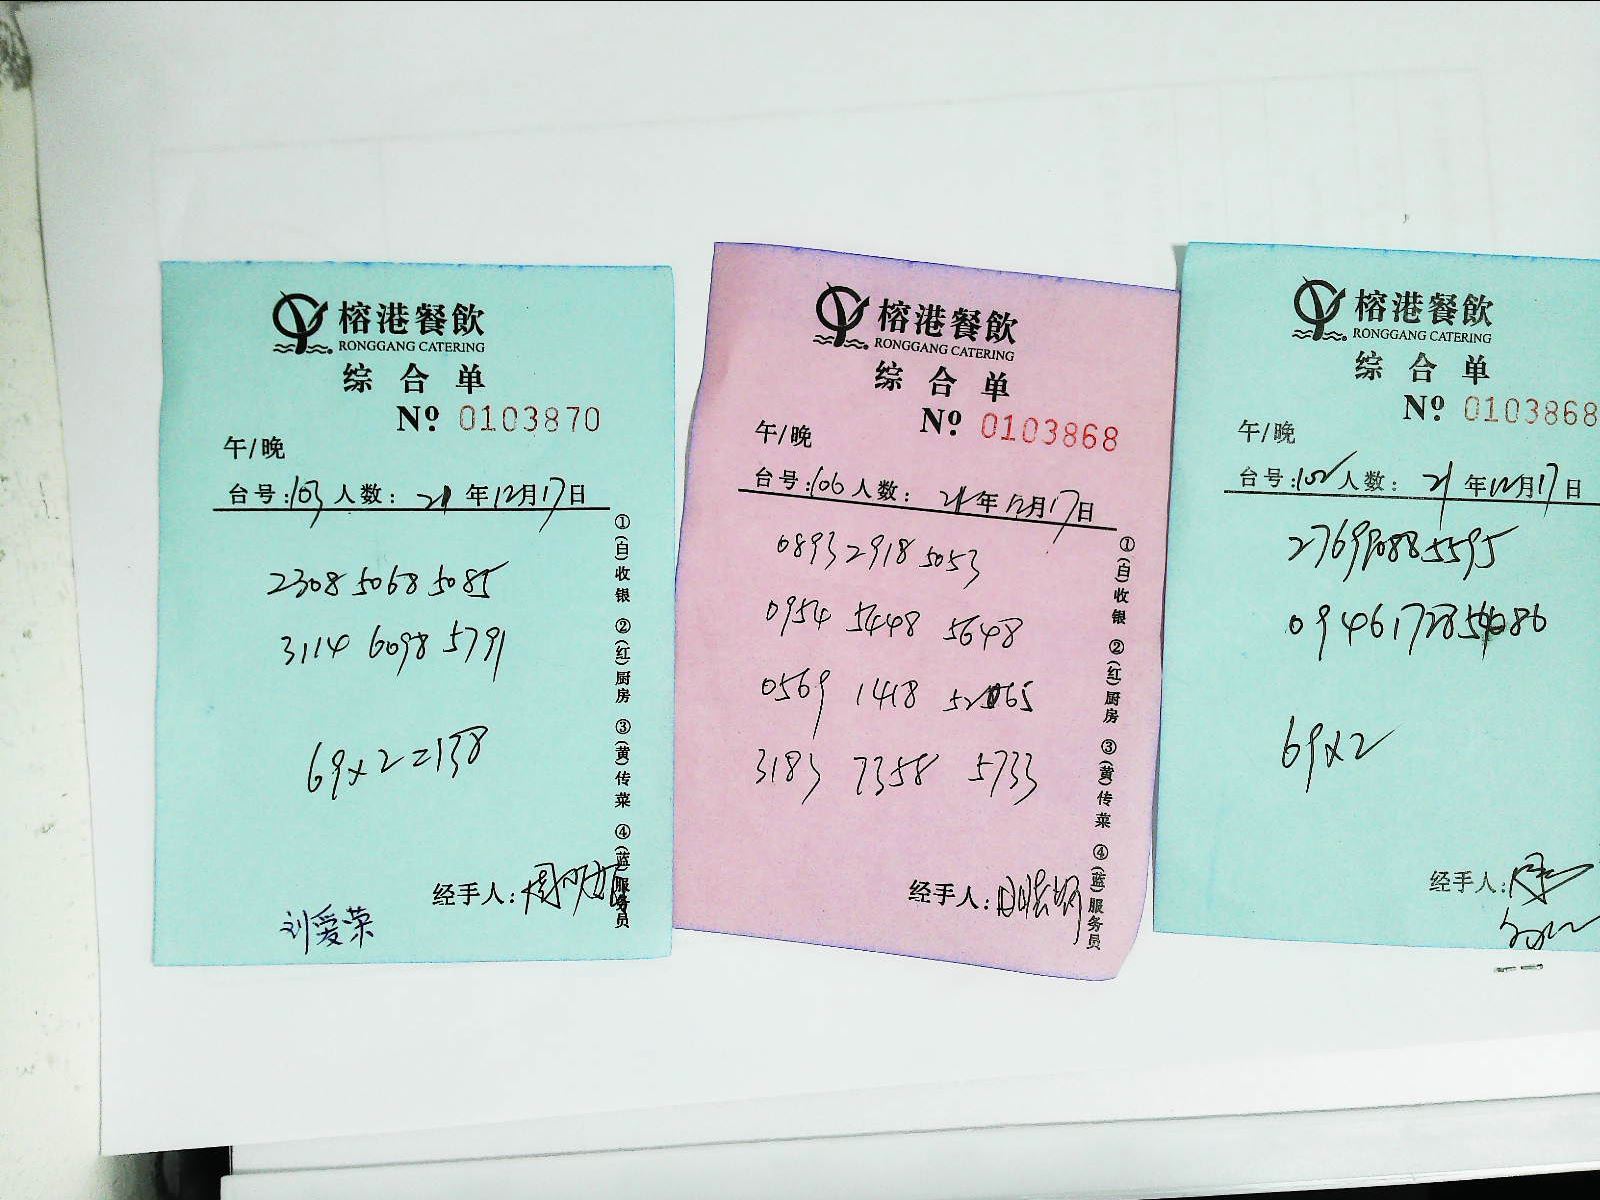 榕港餐飲
RONGGANG CATERING
综合单
Nº 0103870
午/晚
台号:103 人数: 21年12月17日
2308 5068 5085
3114 6098 5791
69x2=138
经手人:
刘爱荣
①(白)收银 ②(红)厨房 ③(黄)传菜 ④(蓝)服务员
榕港餐飲
RONGGANG CATERING
综合单
Nº 0103868
午/晚
台号:106 人数: 21年12月17日
0893 2918 5053
0954 5448 5648
0569 1418
3183 7358 5733
经手人:
①(白)收银 ②(红)厨房 ③(黄)传菜 ④(蓝)服务员
榕港餐飲
RONGGANG CATERING
综合单
Nº 0103868
午/晚
台号:102 人数: 21年12月17日
5595
0946 1728
69x2
经手人: